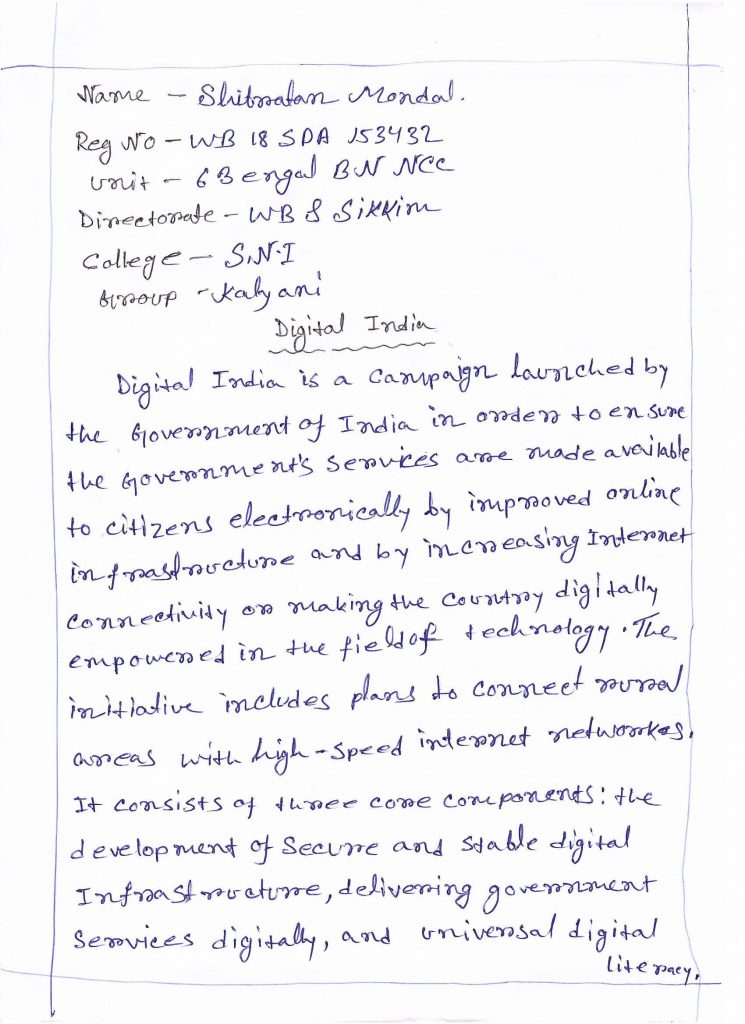 Name - Shibratan Mondal.
Reg No - WB 18 SDA 153432
Unit - 6 Bengal BN NCC
Directorate - WB & Sikkim
College - S.N.I
Group - Kalyani
Digital India
Digital India is a campaign launched by
the Government of India in order to ensure
the Government's services are made available
to citizens electronically by improved online
infrastructure and by increasing Internet
connectivity or making the country digitally
empowered in the field of technology. The
initiative includes plans to connect rural
areas with high-speed internet networkes.
It consists of three core components: the
development of secure and stable digital
Infrastructure, delivering government
Services digitally, and universal digital
literacy.